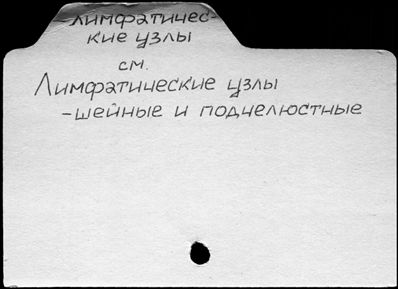 Лимфатичес-
кие узлы
см.
Лимфатические узлы
-шейные и подчелюстные